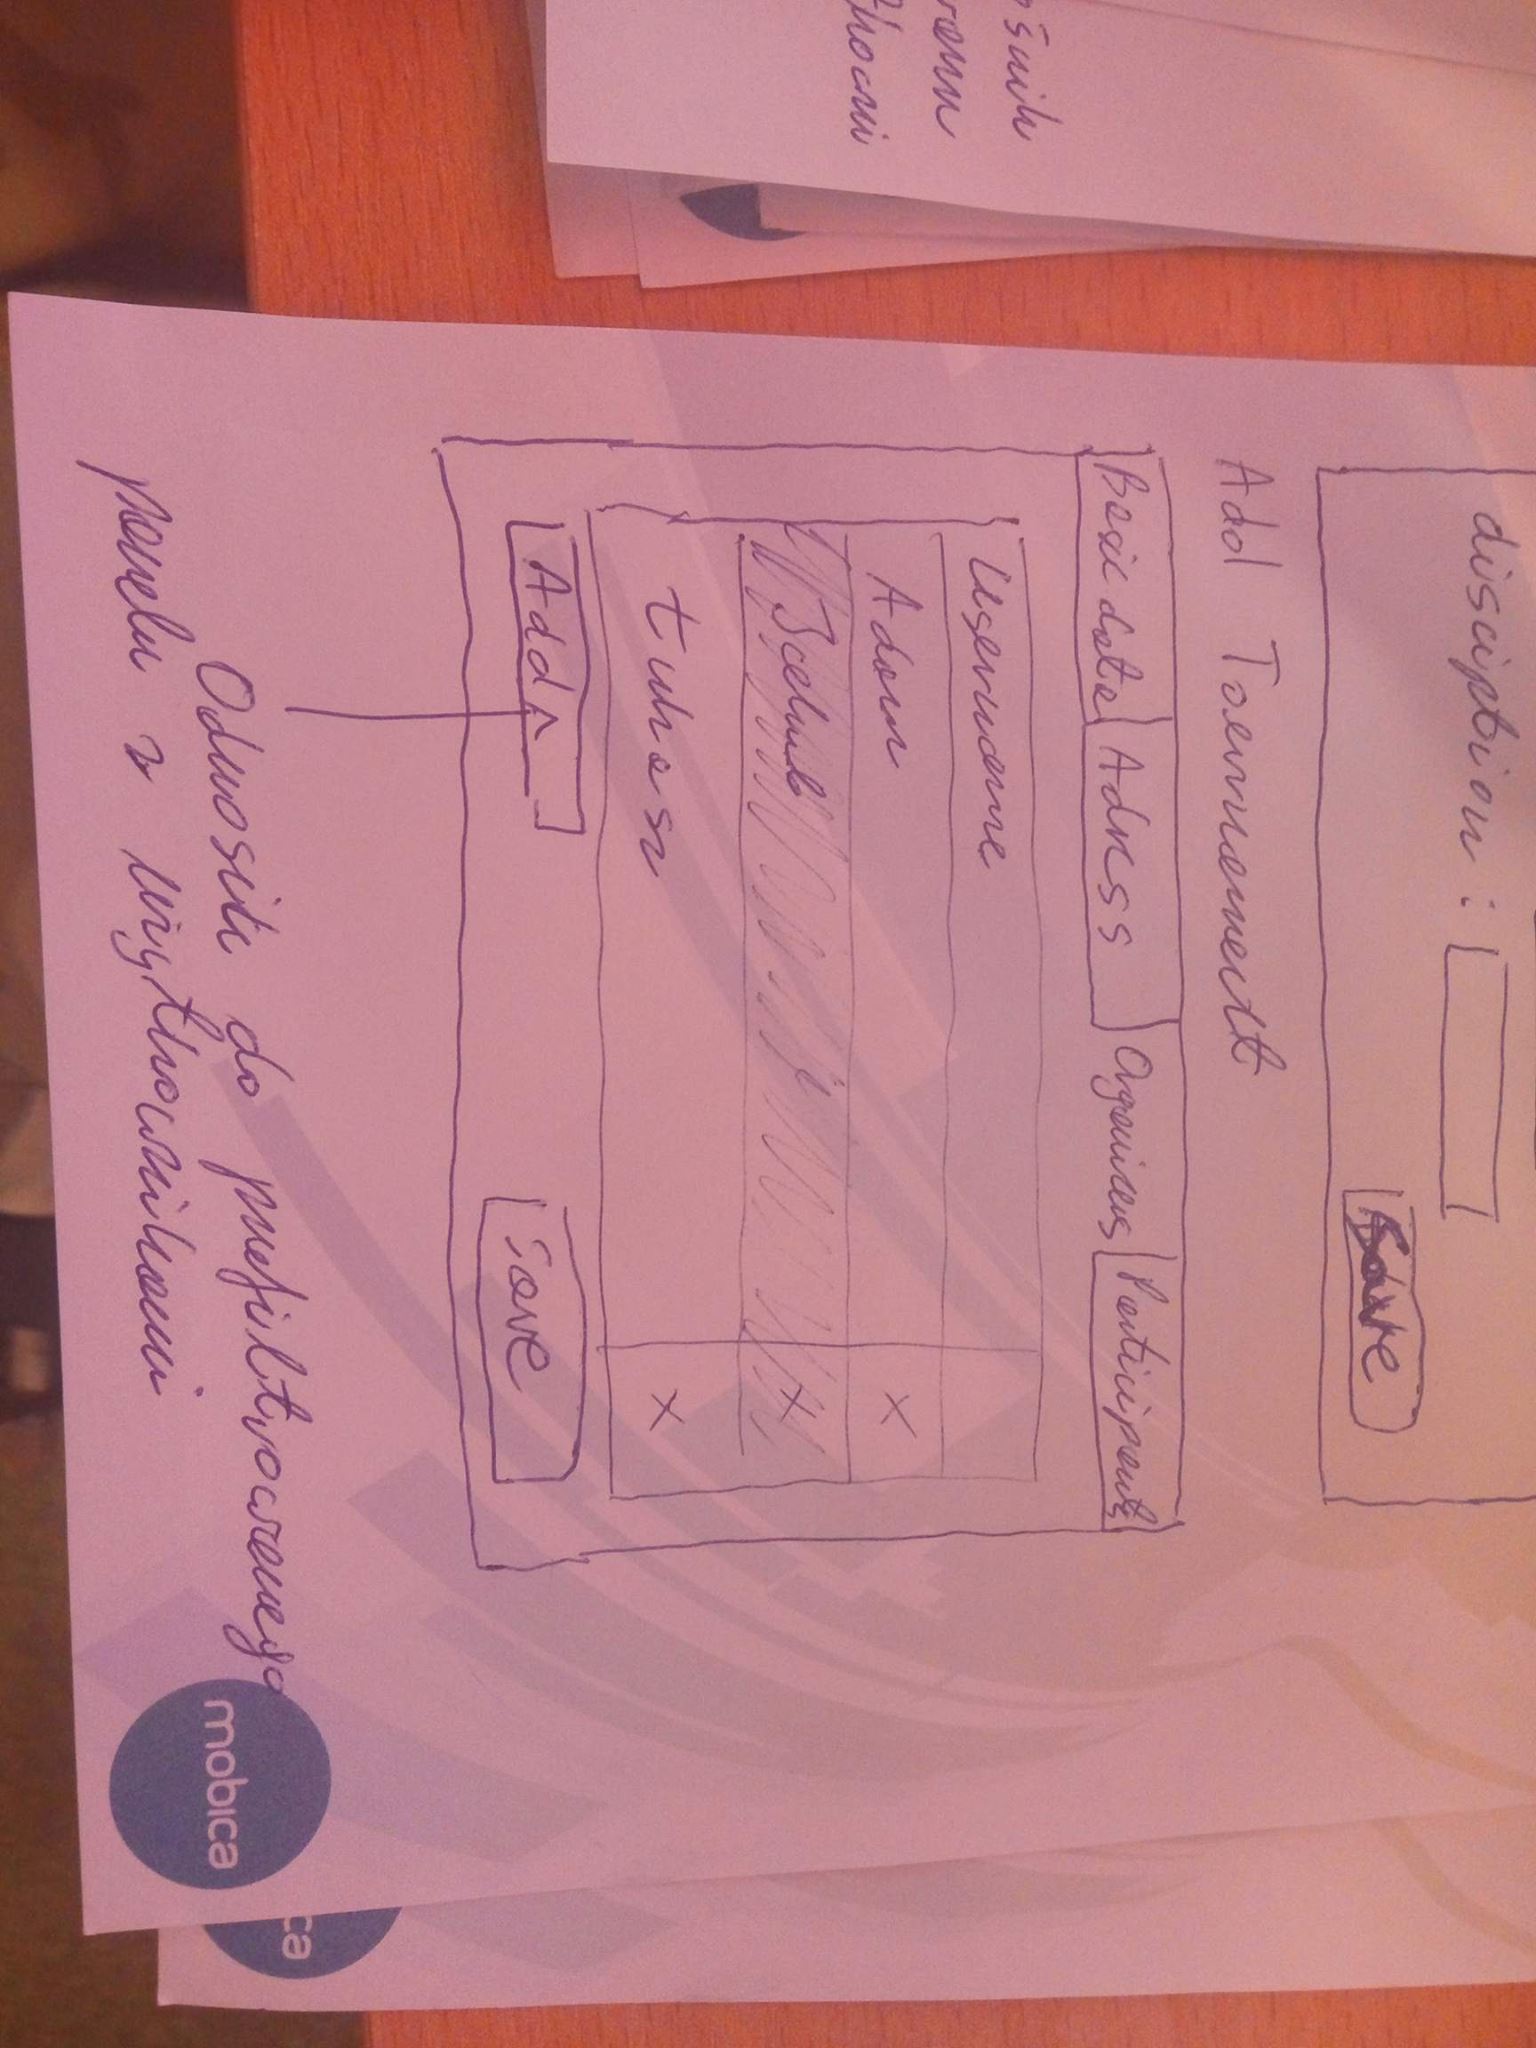 discibtion:
Save
Add Toernament
Basic data Adress Organisers Participants
Username
Adam X
X
Łukasz X
Add Save
Odnośnik do prefiltrowanego
panelu z użytkownikami
mobica
ca